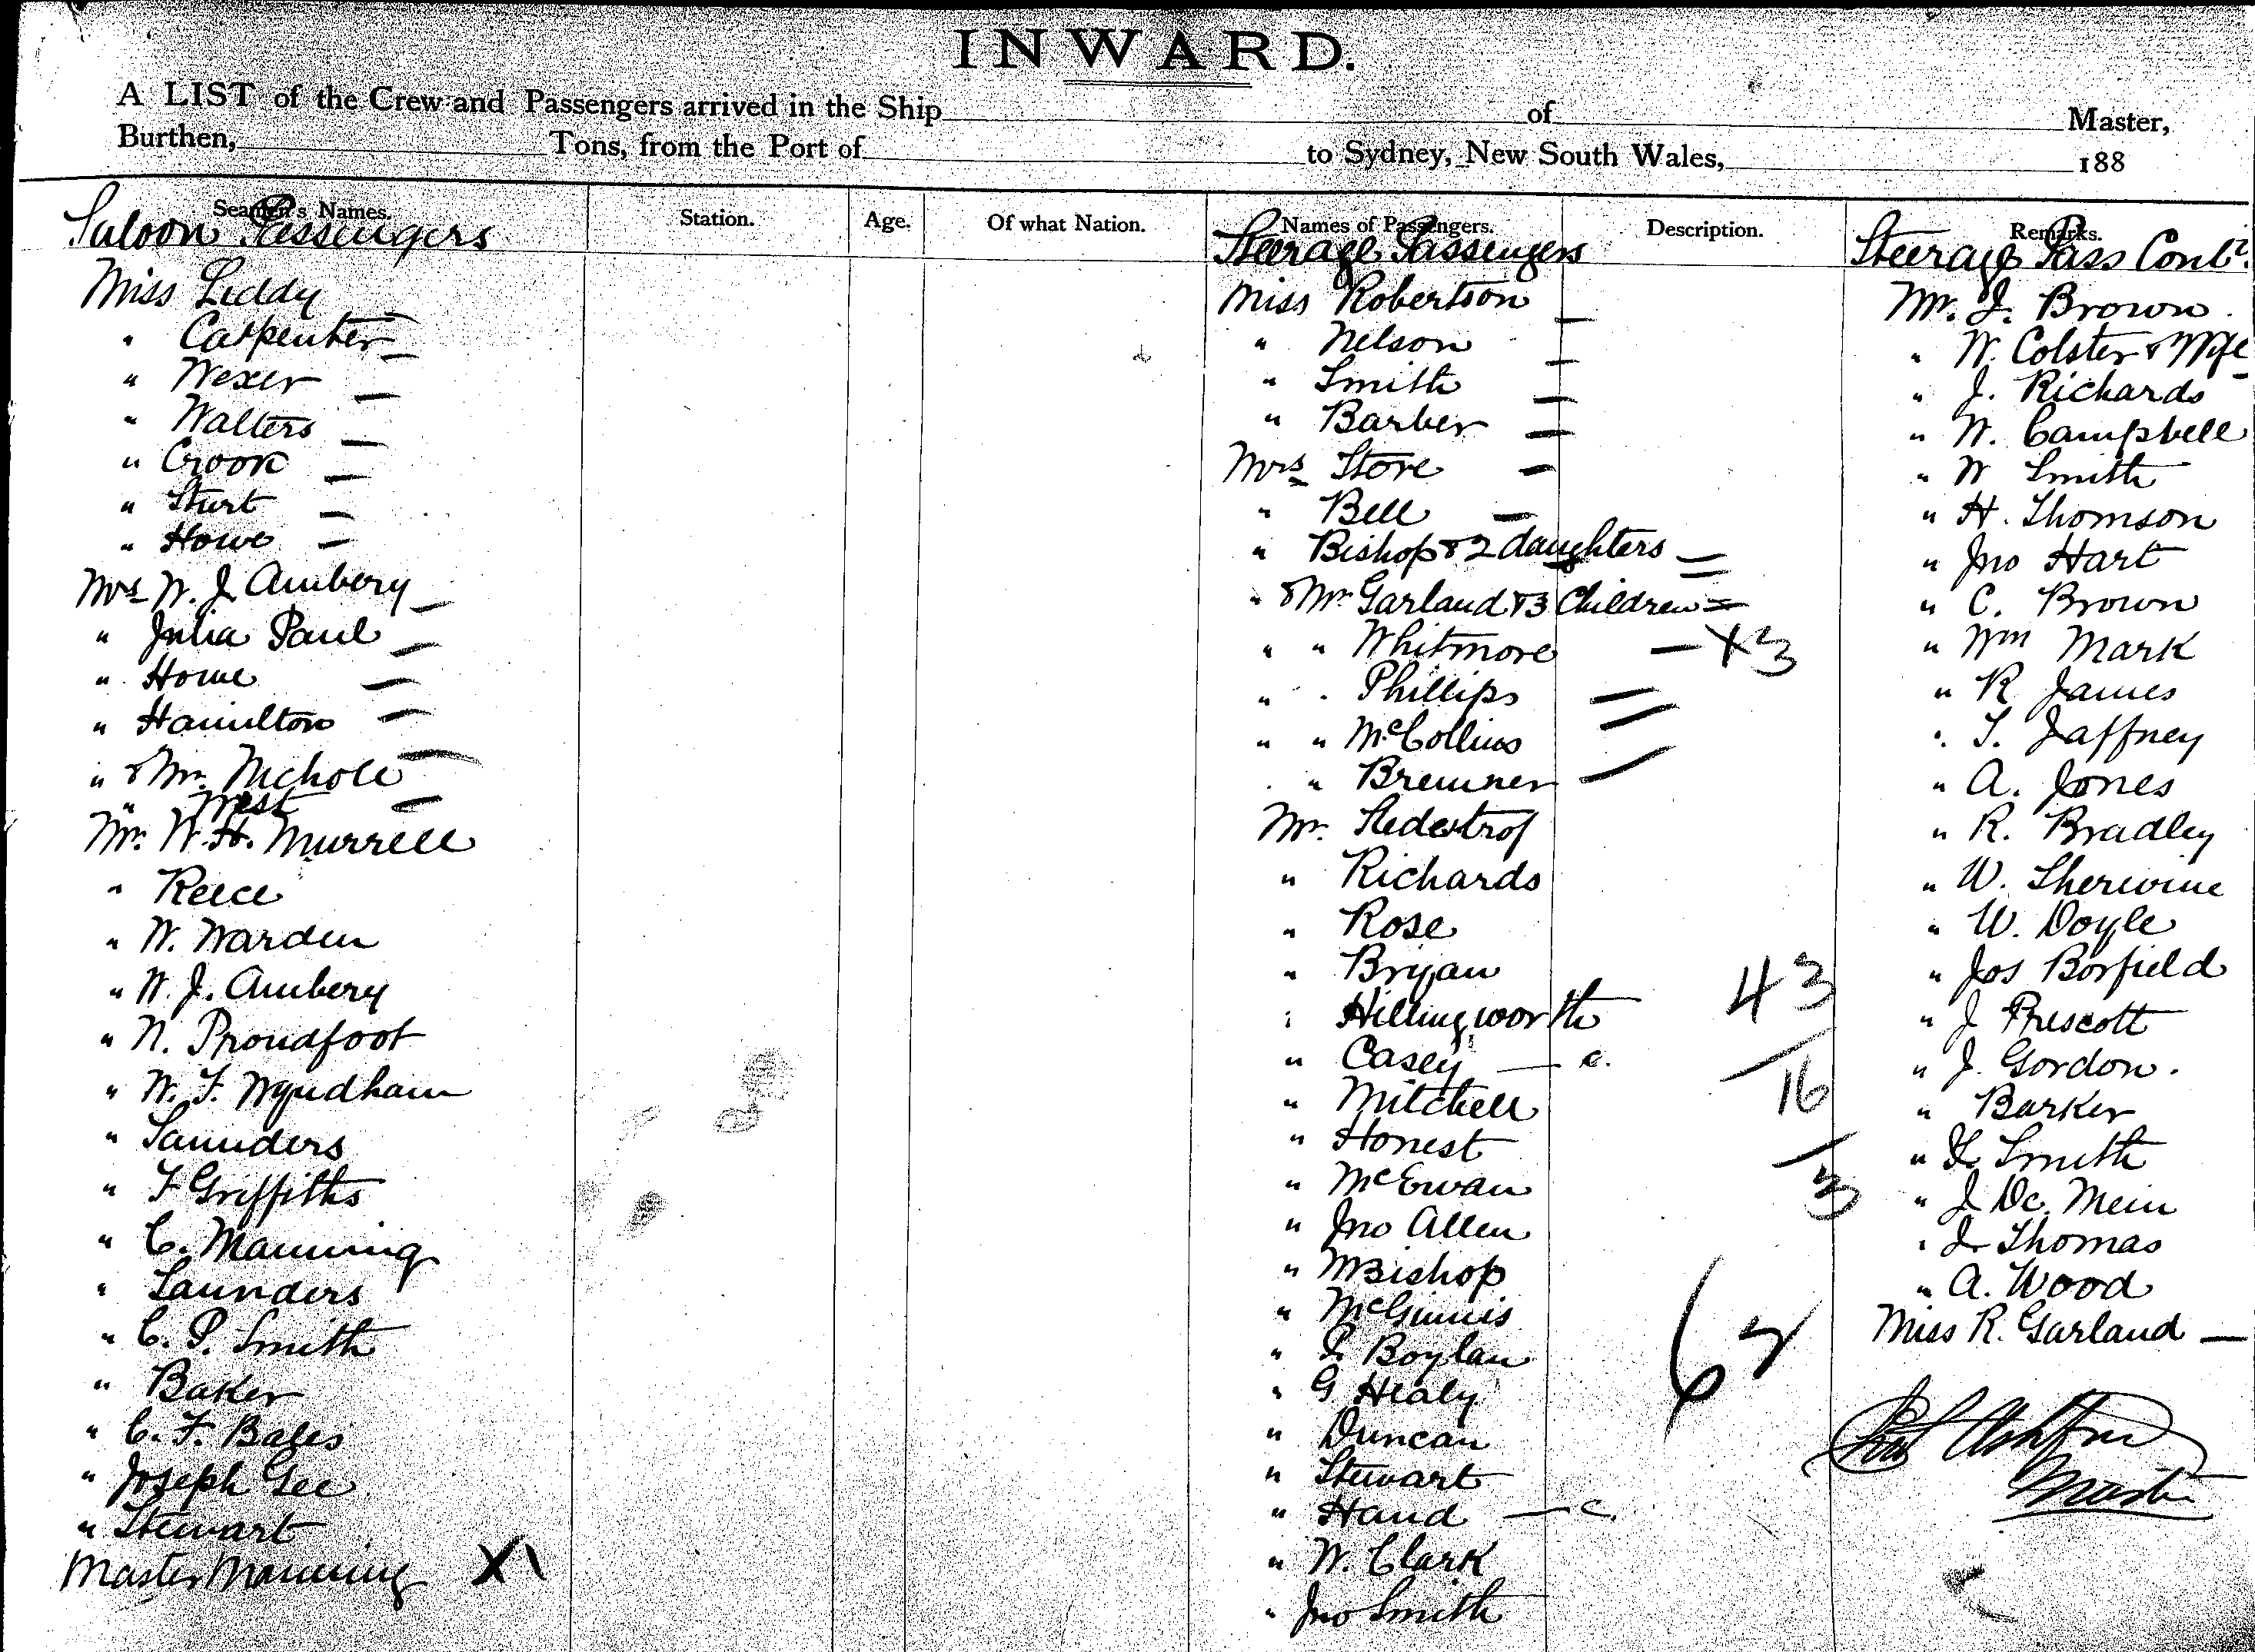 INWARD.
A LIST of the Crew and Passengers arrived in the Ship of Master,
Burthen, Tons, from the Port of to Sydney, New South Wales, 188
Seamen's Names. Station. Age. Of what Nation. Names of Passengers. Description. Remarks.
Saloon Passengers
Miss Liddy
" Carpenter
" Wexer
" Walters
" Crook
" Sturt
" Howe
Mrs W. J. Ambery
" Julia Paul
" Howe
" Hamilton
" & Mr. Nicholl
" West
Mr. W. H. Murrell
" Reece
" W. Warden
" W. J. Ambery
" N. Proudfoot
" W. F. Wyndham
" Saunders
" F Griffiths
" C. Manning
" Saunders
" C. P. Smith
" Baker
" C. F. Bales
" Joseph Gee
" Stewart
Master Manning X1
Steerage Passengers
Miss Robertson
" Nelson
" Smith
" Barber
Mrs Stove
" Bell
" Bishop & 2 daughters
" & Mr Garland & 3 Children
" " Whitmore X3
" " Phillips
" " McCollins
" " Bremner
Mr.
" Richards
" Rose
" Bryan
" Hillingworth
" Casey — c.
" Mitchell
" Honest
" McEwan
" Jno Allen
" W Bishop
" McGinnis
" P. Boylan
" G Healy
" Duncan
" Stewart
" Hand — c.
" W. Clark
" Jno Smith
43
/16
/3
62
Steerage Pass Contd.
Mr. J. Brown.
" W. Colster & Wife
" J. Richards
" W. Campbell
" W Smith
" H. Thomson
" Jno Hart
" C. Brown
" Wm Mark
" R James
" T. Jaffney
" A. Jones
" R. Bradley
" W. Sherwine
" W. Doyle
" Jos Borfield
" J Prescott
" J. Gordon.
" Barker
" Smith
" J Dc. Mein
" J Thomas
" A. Wood
Miss R. Garland
Ashford
Master